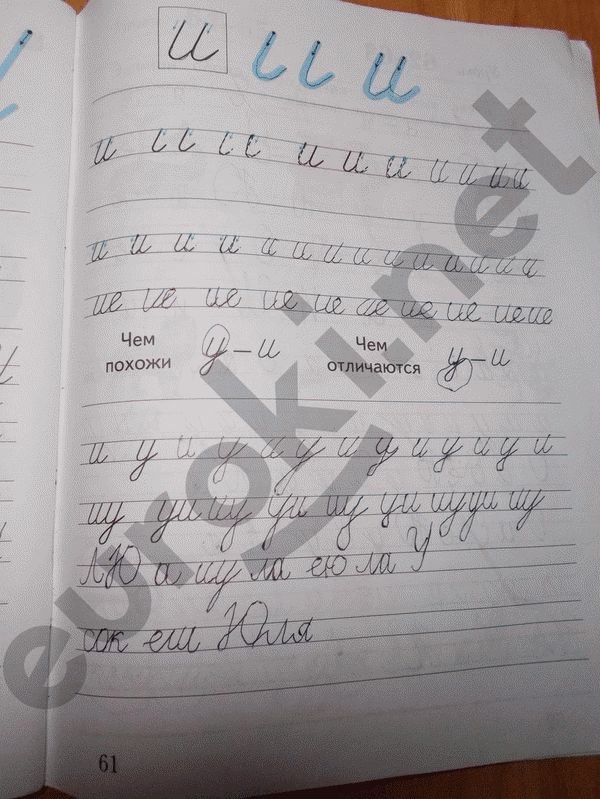 и
и и и и и и и и
и и и и и и и и и и и и и
ие ие ие ие ие ие ие ие иеие
Чем похожи у – и Чем отличаются у – и
и у и у и у и у и у и у и
иу уи иу уи иу уи иууи иу
ЛЮ а иу ла ею ла У
сок еш Юля
61
euroki.net